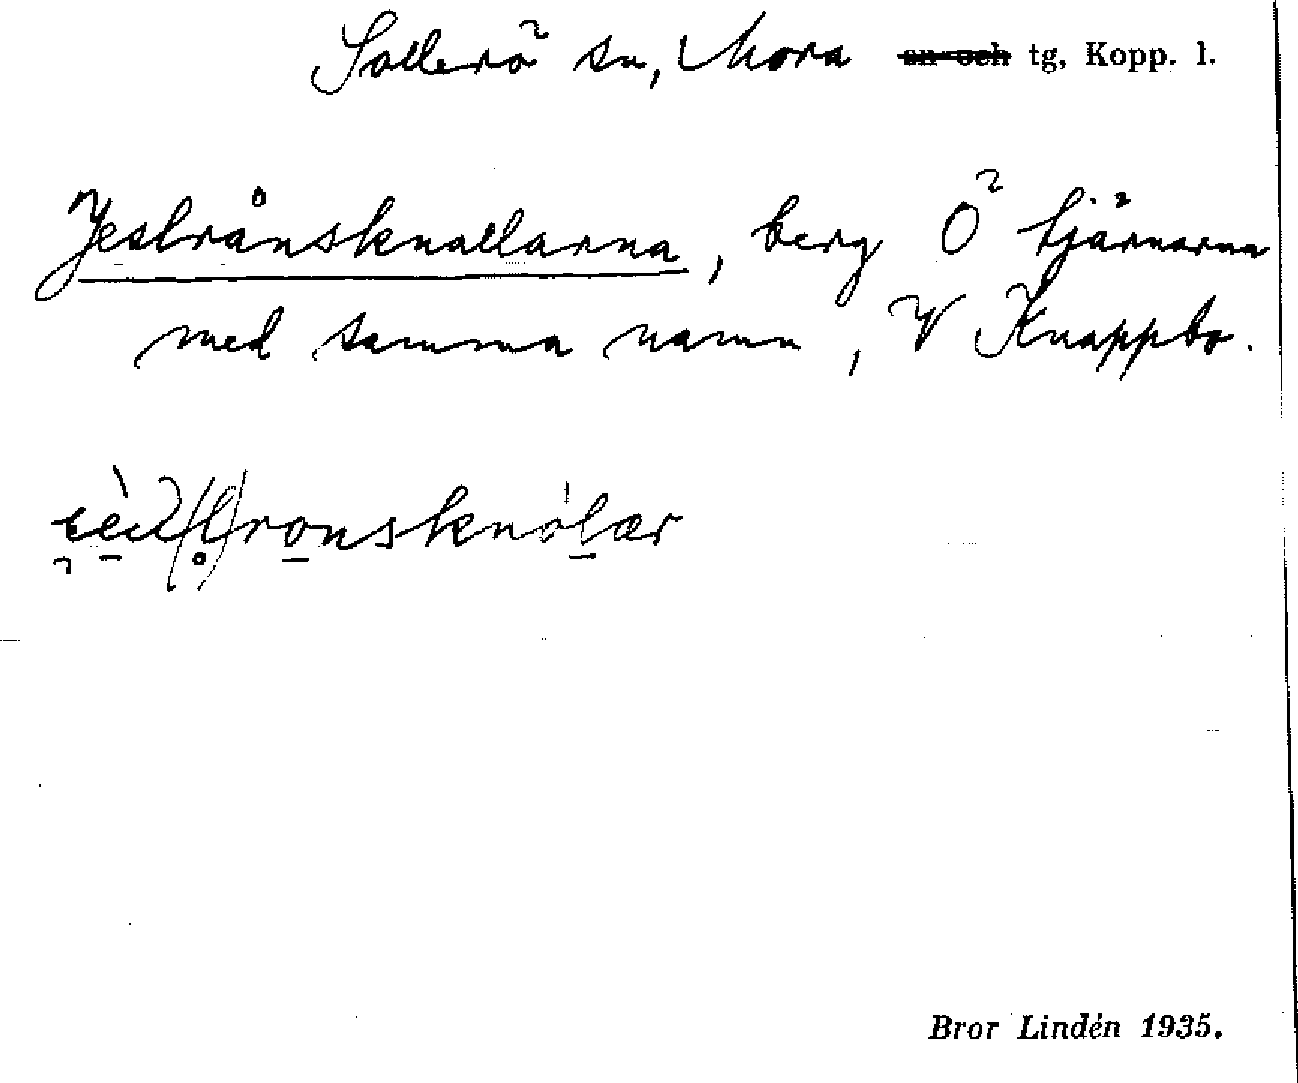 Sollerö sn, Mora sn och tg, Kopp. l.
Jeslrånsknallarna, berg Ö tjärnarna
med samma namn, V Knappbo.
Bror Lindén 1935.